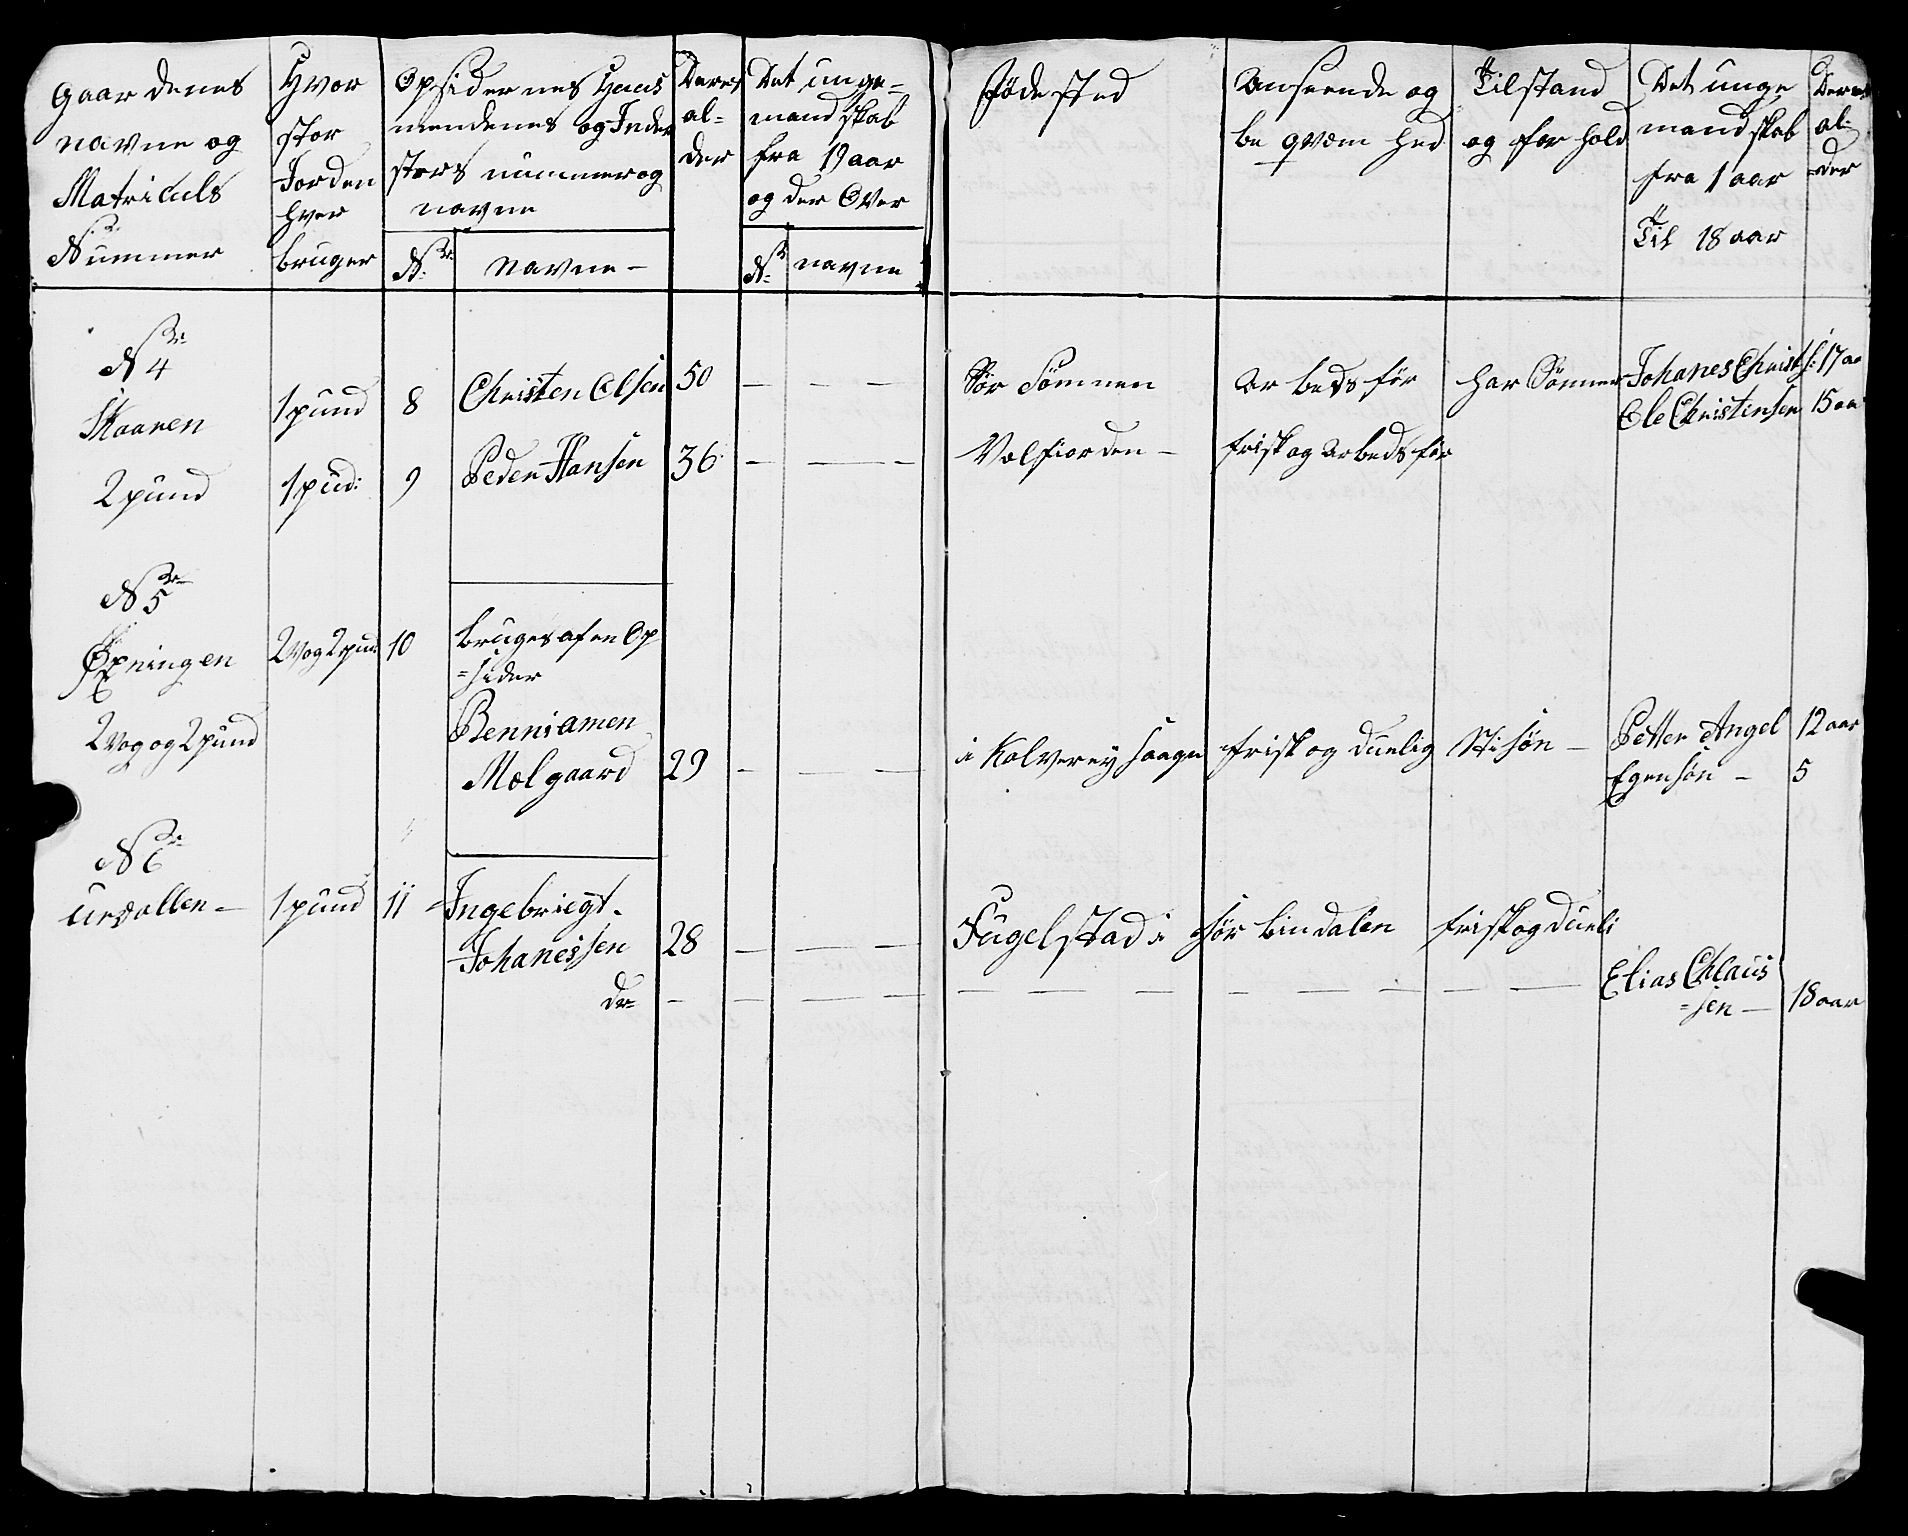 Gaardenes
navne og
Matriculs
Nummer
Hvor
stor
Jorden
hver
bruger
Opsidernes Huus
mendenes og Inder
sters nummer og
navne
Nr.
navne —
Deres
al-
der
Det unge-
mandskab
fra 19 aar
og der Over
Nr.
navne
Föde sted
Anseende og
be qvæm hed
Tilstand
og for hold
Det unge
mandskab
fra 1 aar
Til 18 aar
Deres
al-
der
Nr 4
Skaaren
2 pund
1 pund 8 Christen Olsen 50 — — — Sör Sömnen Arbeds för har Sönner Johanes Christ s: 17 aa
Ole Christensen 15 aar
1 pud: 9 Peder Hansen 36 — — — Velfiorden — frisk og Arbeds för
Nr 5
Öxningen
2 Vog og 2 pund
2 Vog 2 pund 10 bruges af en Op
=sider
Benniamen
Mølgaard 29 — — — i Kolverey Saagn frisk og duelig Stisön — Petter Angel 12 aar
Egen sön — 5
Nr 6
Urdallen —
1 pund 11 Ingebrigt
Johanessen 28 — — — Fugelstad i Sör bindalen frisk og dueli
do — — — — — — — — — — — — Elias Chlaus
=sen — 18 aar